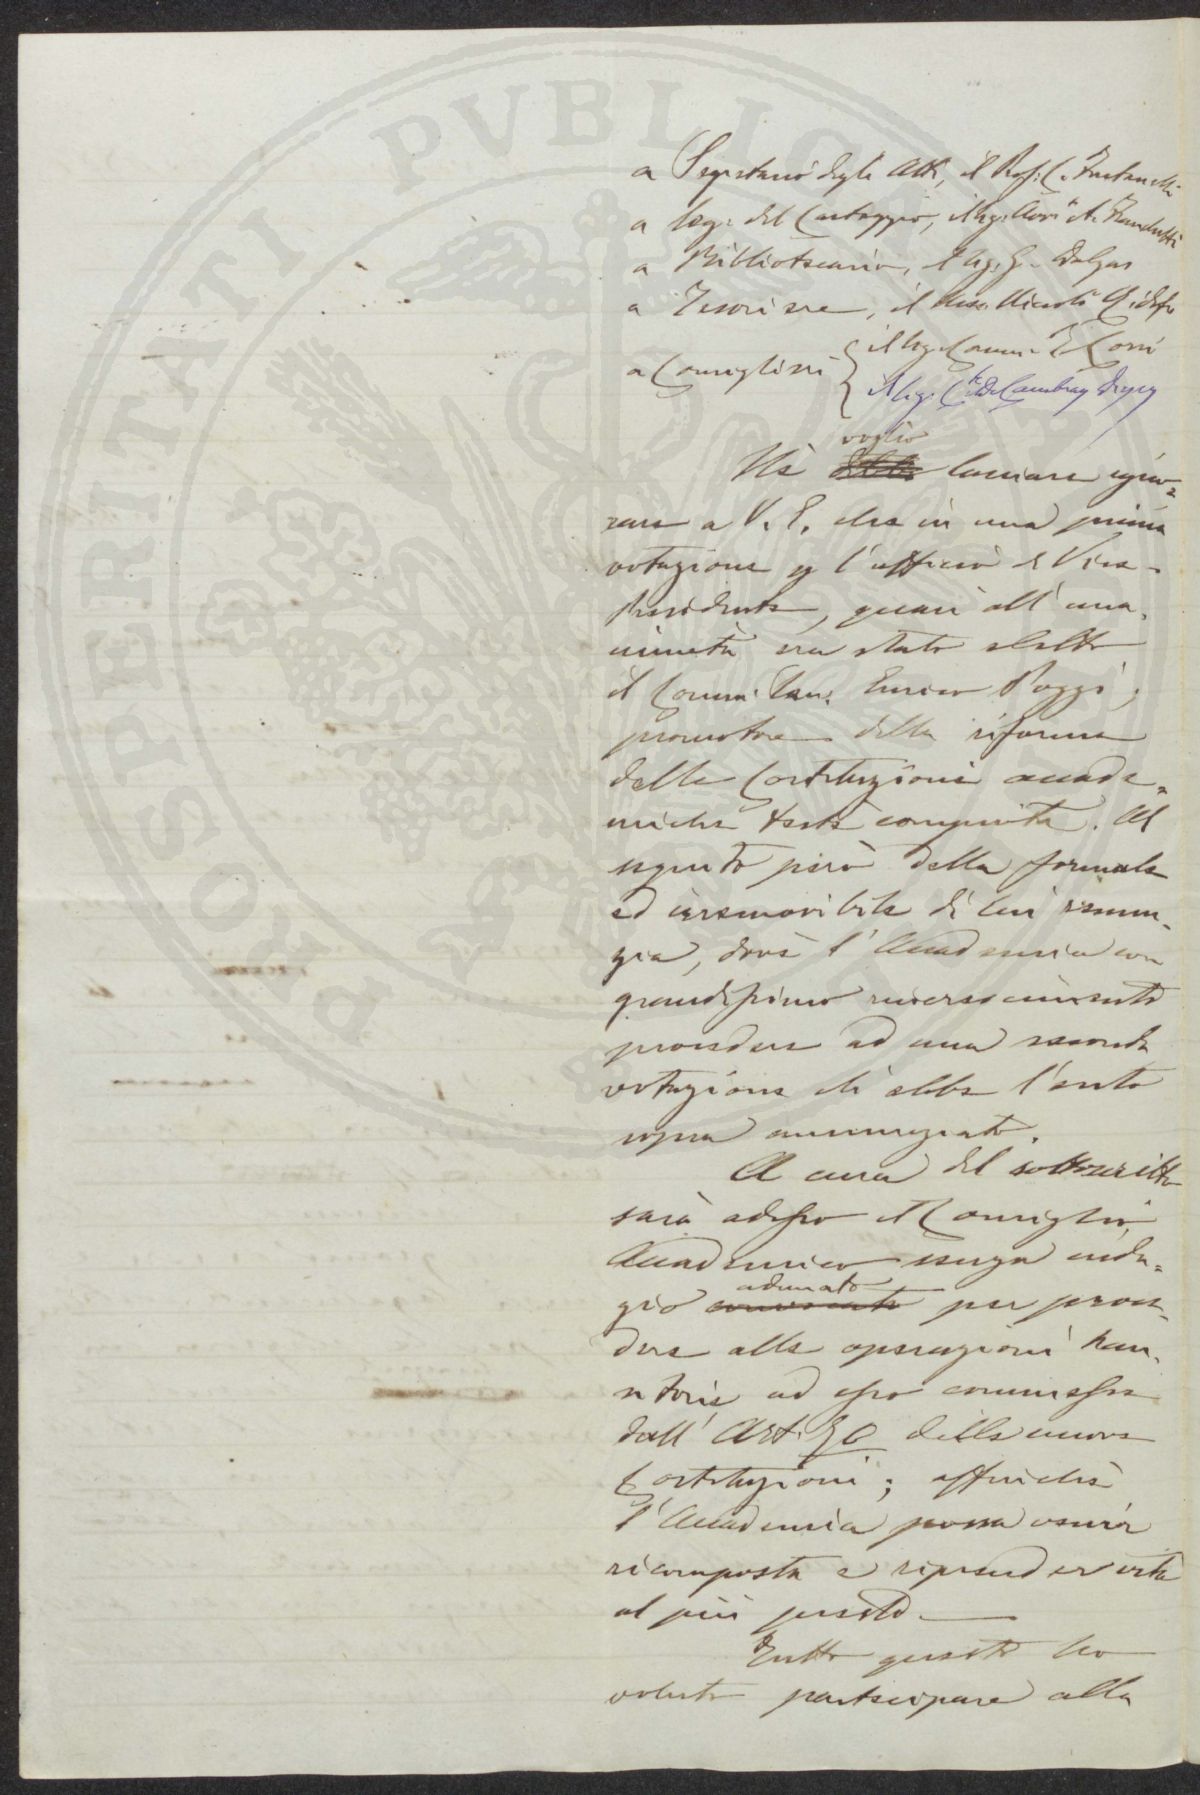 PROSPERITATI PVBLICAE
a Segretario degli Atti, il Prof. C. Fontanelli
a Seg. del Carteggio, il Sig. Avv. A. Franchetti
a Bibliotecario, il Sig. G. Dalgas
a Tesoriere, il Niccolò
a Consiglieri { il Sig. Comm.
il Sig. Cte De Cambray Digny
voglio
Nè debbo lasciare igno=
rare a V. E. che in una prima
votazione p l'ufficio di Vice-
Presidente, quasi all'una-
nimità era stato eletto
il Comm. Sen. Enrico Poggi,
promotore della riforma
delle Costituzioni accade=
miche testè compiuta. Al
seguito però della formale
ed irremovibile di lui renun-
zia, dovè l'Accademia con
grandissimo rincrescimento
procedere ad una seconda
votazione chi ebbe l'esito
sopra annunziato.
A cura del sottoscritto
sarà adesso il Consiglio
Accademico senza indu=
adunato
gio convocato per proce=
dere alle operazioni tran-
sitorie ad esso commesse
dall'Art. delle nuove
Costituzioni; affinchè
l'Accademia possa esser
ricomposta e riprender vita
al più presto.
Tutto questo ho
voluto partecipare alla